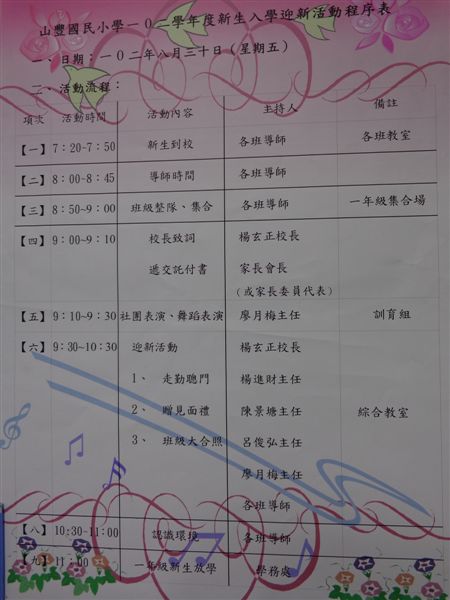 山豐國民小學一０二學年度新生入學迎新活動程序表
一、日期：一０二年八月三十日（星期五）
二、活動流程：
項次 活動時間 活動內容 主持人 備註
【一】 7：20~7：50 新生到校 各班導師 各班教室
【二】 8：00~8：45 導師時間 各班導師
【三】 8：50~9：00 班級整隊、集合 各班導師 一年級集合場
【四】 9：00~9：10 校長致詞 楊玄正校長
遞交託付書 家長會長
（或家長委員代表）
【五】 9：10~9：30 社團表演、舞蹈表演 廖月梅主任 訓育組
【六】 9：30~10：30 迎新活動 楊玄正校長
1、 走勤聰門 楊進財主任
2、 贈見面禮 陳景塘主任 綜合教室
3、 班級大合照 呂俊弘主任
廖月梅主任
各班導師
【八】 10：30-11：00 認識環境 各班導師
【九】 11：00 一年級新生放學 學務處